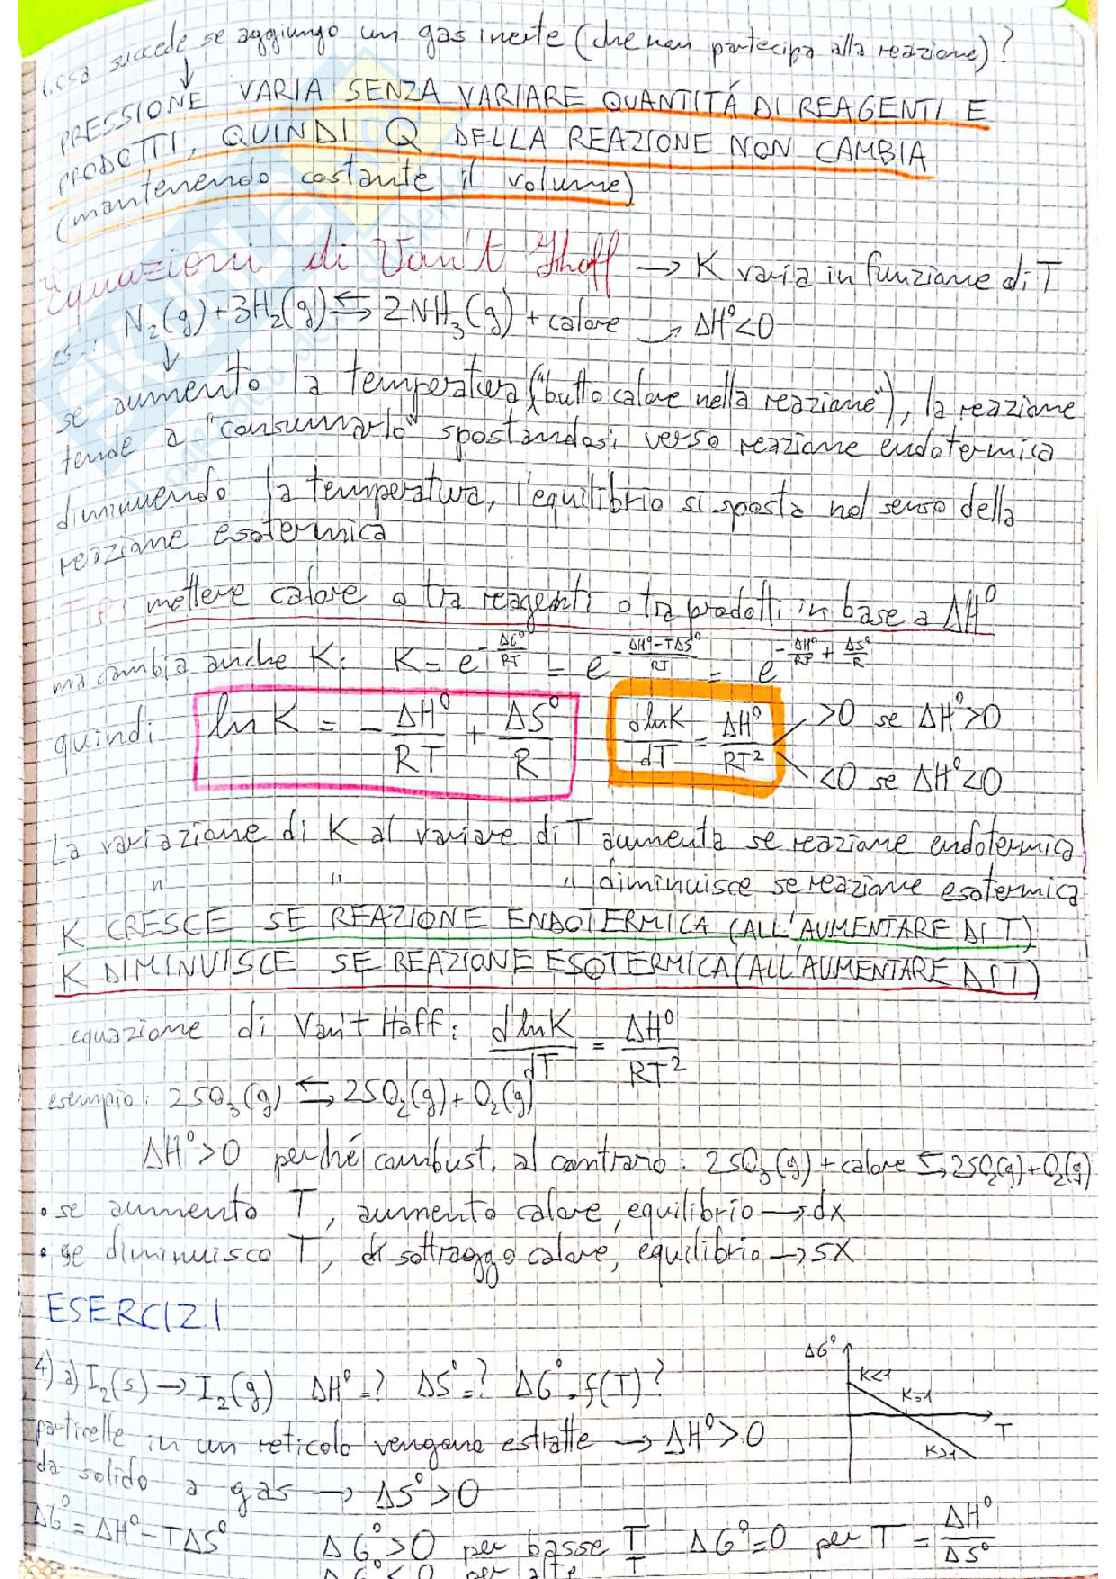 Cosa succede se aggiungo un gas inerte (che non partecipa alla reazione)?
PRESSIONE VARIA SENZA VARIARE QUANTITÁ DI REAGENTI E
PRODOTTI, QUINDI Q DELLA REAZIONE NON CAMBIA
(mantenendo costante il volume)
Equazioni di Van't Hoff → K varia in funzione di T
es.: N₂(g)+3H₂(g)⇆2NH₃(g)+calore → ΔH°<0
se aumento la temperatura ("butto calore nella reazione"), la reazione
tende a "consumarlo" spostandosi verso reazione endotermica
diminuendo la temperatura, l'equilibrio si sposta nel senso della
reazione esotermica
mettere calore o tra reagenti o tra prodotti in base a ΔH°
ma cambia anche K: K = e^(-ΔG°/RT) = e^(-(ΔH°-TΔS°)/RT) = e^(-ΔH°/RT + ΔS°/R)
quindi: ln K = - ΔH°/RT + ΔS°/R   dlnK/dT = ΔH°/RT² >0 se ΔH°>0
<0 se ΔH°<0
La variazione di K al variare di T aumenta se reazione endotermica
" " " diminuisce se reazione esotermica
K CRESCE SE REAZIONE ENDOTERMICA (ALL'AUMENTARE DI T)
K DIMINUISCE SE REAZIONE ESOTERMICA (ALL'AUMENTARE DI T)
equazione di Van't Hoff: dlnK/dT = ΔH°/RT²
esempio: 2SO₃(g) ⇆ 2SO₂(g)+O₂(g)
ΔH°>0 perché combust. al contrario: 2SO₃(g)+calore⇆2SO₂(g)+O₂(g)
• se aumento T, aumento calore, equilibrio → dx
• se diminuisco T, sottraggo calore, equilibrio → sx
ESERCIZI
4) a) I₂(s) → I₂(g) ΔH°=? ΔS°=? ΔG°=f(T)?
ΔG°
K<1
K=1
T
K>1
particelle in un reticolo vengono estratte → ΔH°>0
da solido a gas → ΔS°>0
ΔG°=ΔH°-TΔS° ΔG°>0 per basse T ΔG°=0 per T = ΔH°/ΔS°
ΔG°<0 per alte T